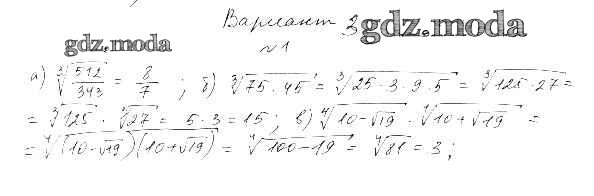 Вариант 3 gdz.moda
gdz.moda
№1
а) ∛(512/343) = 8/7 ; б) ∛(75·45) = ∛(25·3·9·5) = ∛(125·27) =
= ∛125 · ∛27 = 5·3 = 15 ; в) ∜(10-√19) · ∜(10+√19) =
= ∜((10-√19)(10+√19)) = ∜(100-19) = ∜81 = 3 ;